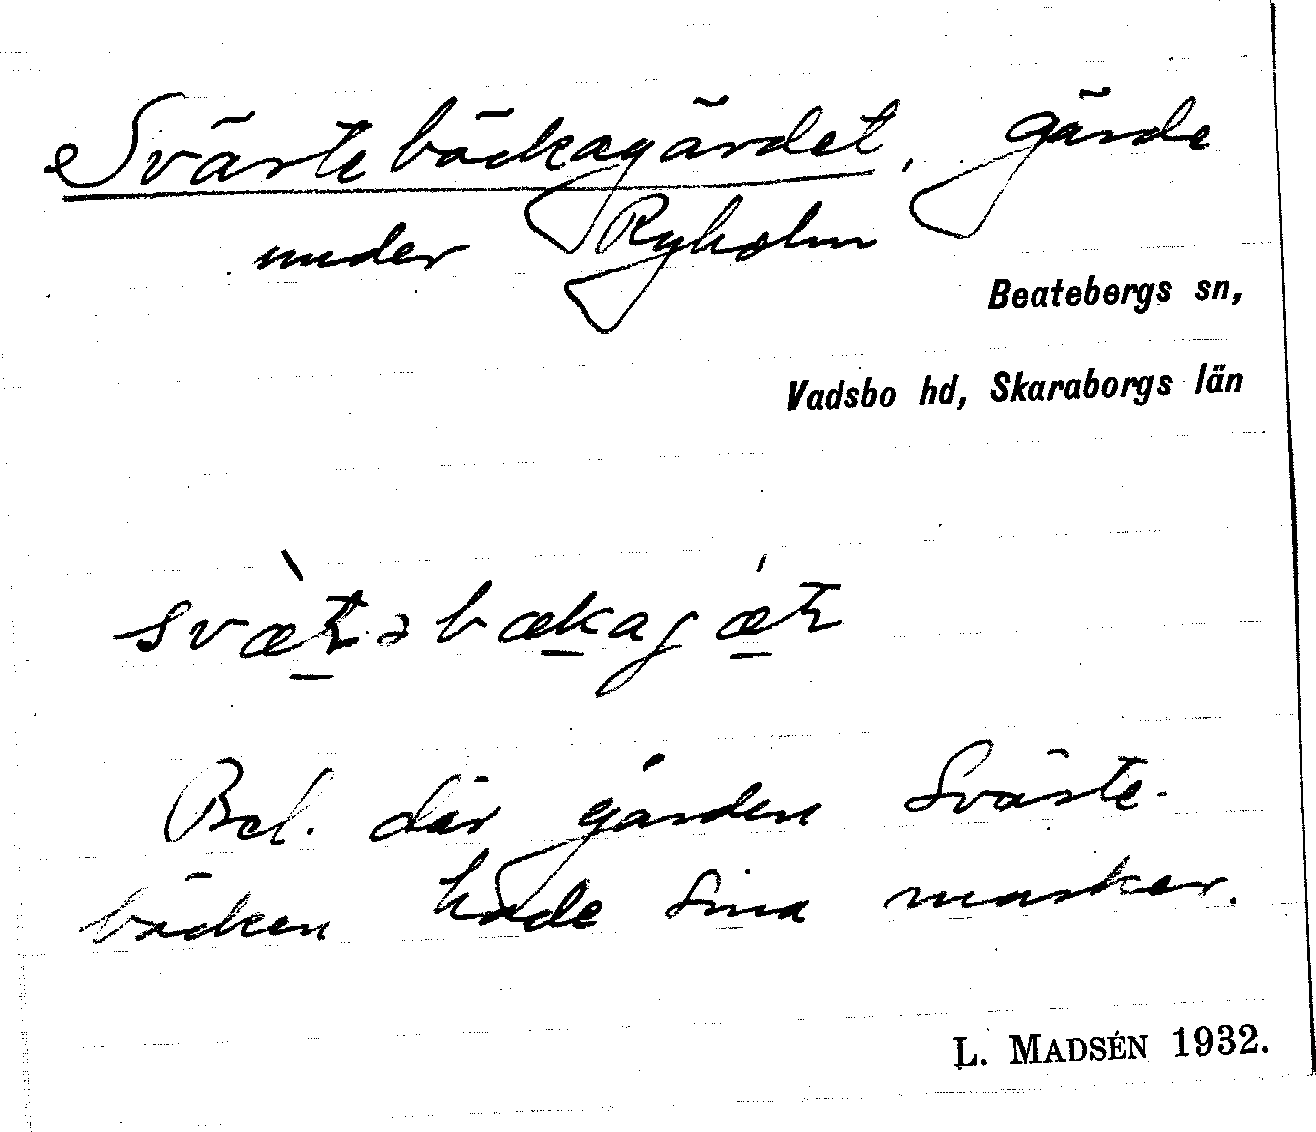 Svärtebäckagärdet, gärde
under Ryholm
Beatebergs sn,
Vadsbo hd, Skaraborgs län
Bel. där gården Svärte-
bäcken hade sina marker.
L. MADSÉN 1932.